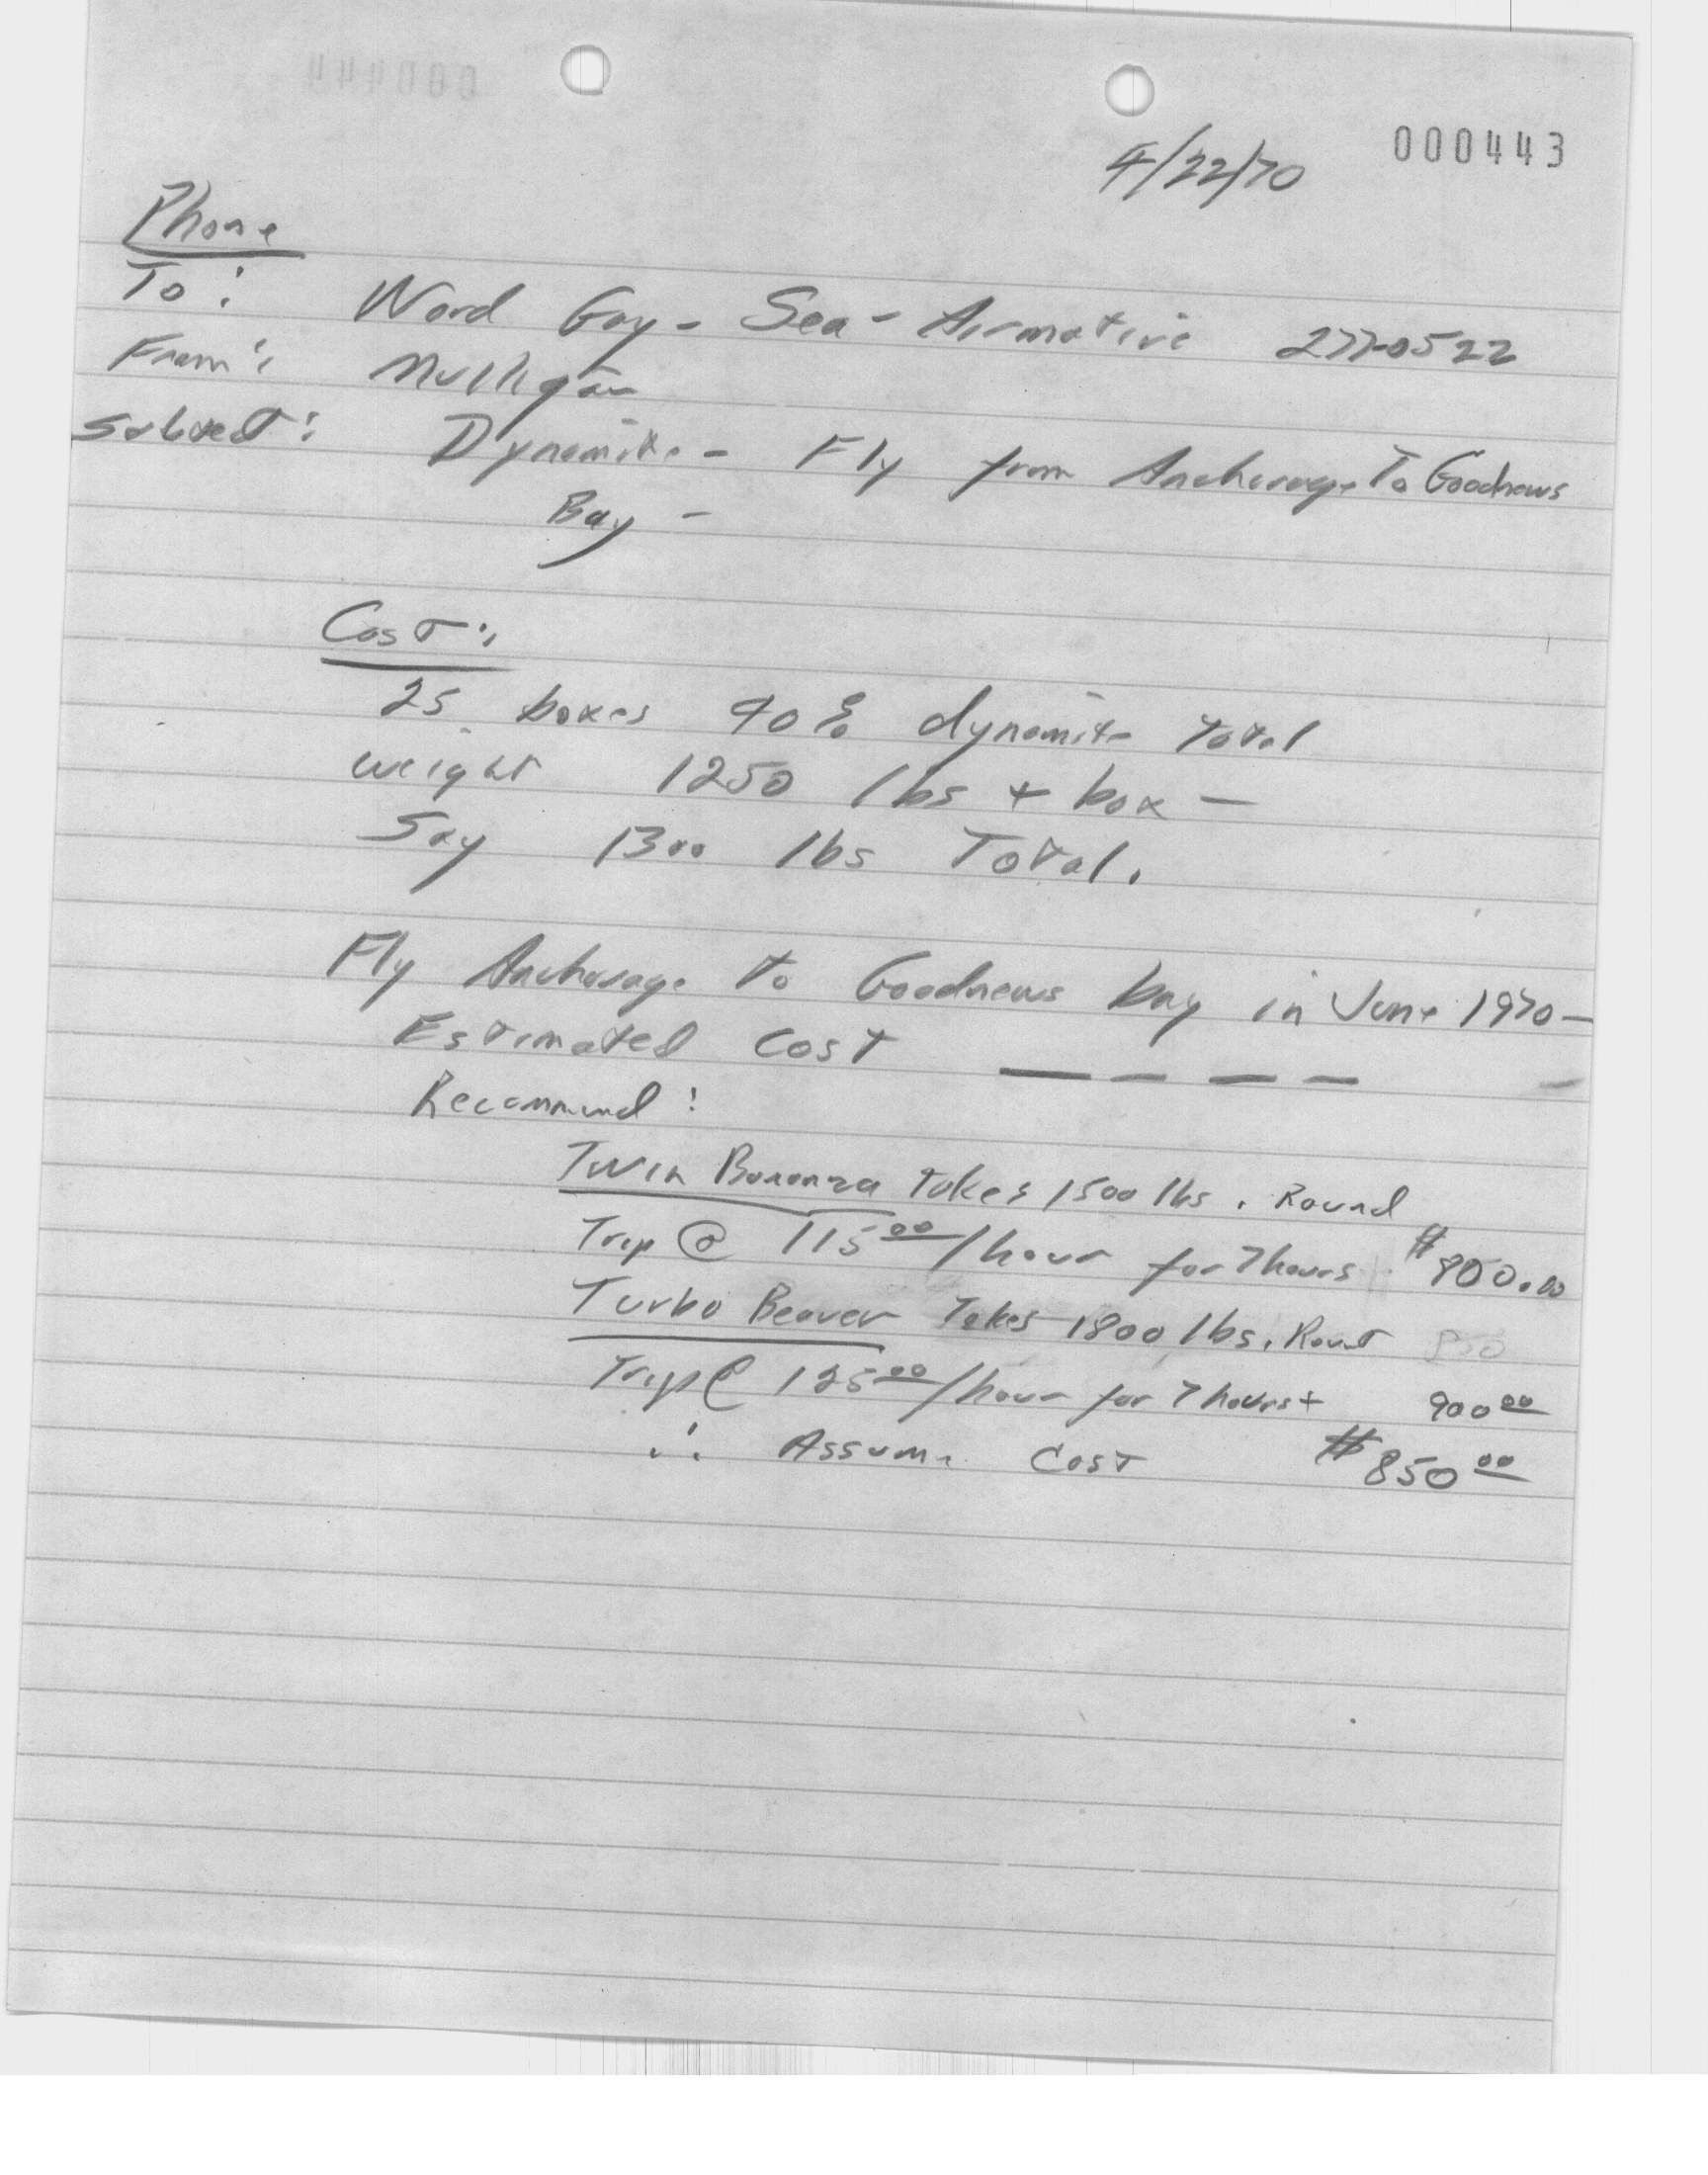 000443
4/22/70
Phone
To: Ward Gay - Sea-Airmotive 277-0522
From: Mulligan
Subject: Dynamite - Fly from Anchorage To Goodnews
Bay -
Cost:
25 boxes 40% dynamite total
weight 1250 lbs + box -
Say 1300 lbs Total.
Fly Anchorage to Goodnews bay in June 1970 -
Estimated Cost
Recommend:
Twin Bonanza takes 1500 lbs. Round
Trip @ 115 00/hour for 7 hours $800.00
Turbo Beaver Takes 1800 lbs. Round
Trip @ 125 00/hour for 7 hours + 900 00
∴ Assume Cost $850 00